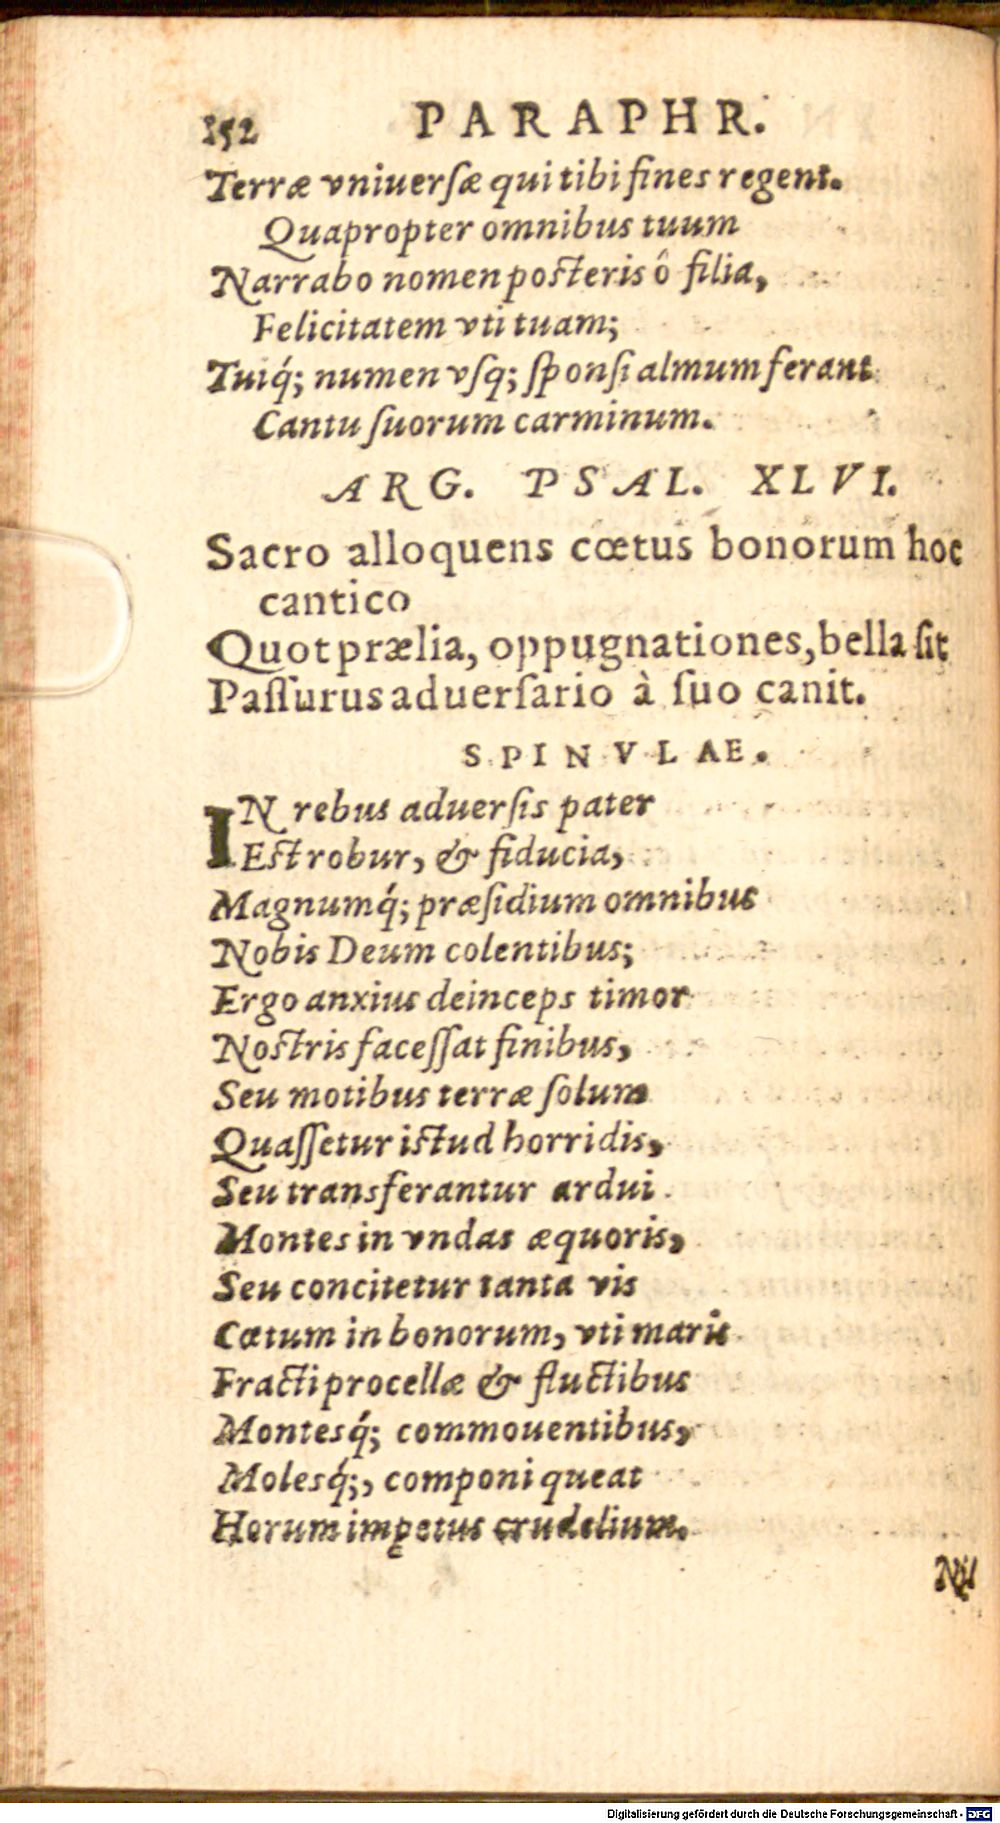 152 PARAPHR.
Terræ vniuerſæ qui tibi fines regent.
Quapropter omnibus tuum
Narrabo nomen poſteris ô filia,
Felicitatem vti tuam;
Tuiq́; numen vſq; ſponſi almum ferant
Cantu ſuorum carminum.
ARG. PSAL. XLVI.
Sacro alloquens cœtus bonorum hoc
cantico
Quot prælia, oppugnationes, bella ſit
Paſſurus aduerſario à ſuo canit.
SPINVLAE.
IN rebus aduerſis pater
Eſt robur, & fiducia,
Magnumq́; præſidium omnibus
Nobis Deum colentibus;
Ergo anxius deinceps timor
Noſtris faceſſat finibus,
Seu motibus terræ ſolum
Quaſſetur iſtud horridis,
Seu transferantur ardui
Montes in vndas æquoris,
Seu concitetur tanta vis
Cœtum in bonorum, vti maris
Fracti procellæ & fluctibus
Montesq́; commouentibus,
Molesq́;, componi queat
Horum impetus crudelium.
Nil
Digitalisierung gefördert durch die Deutsche Forschungsgemeinschaft - DFG